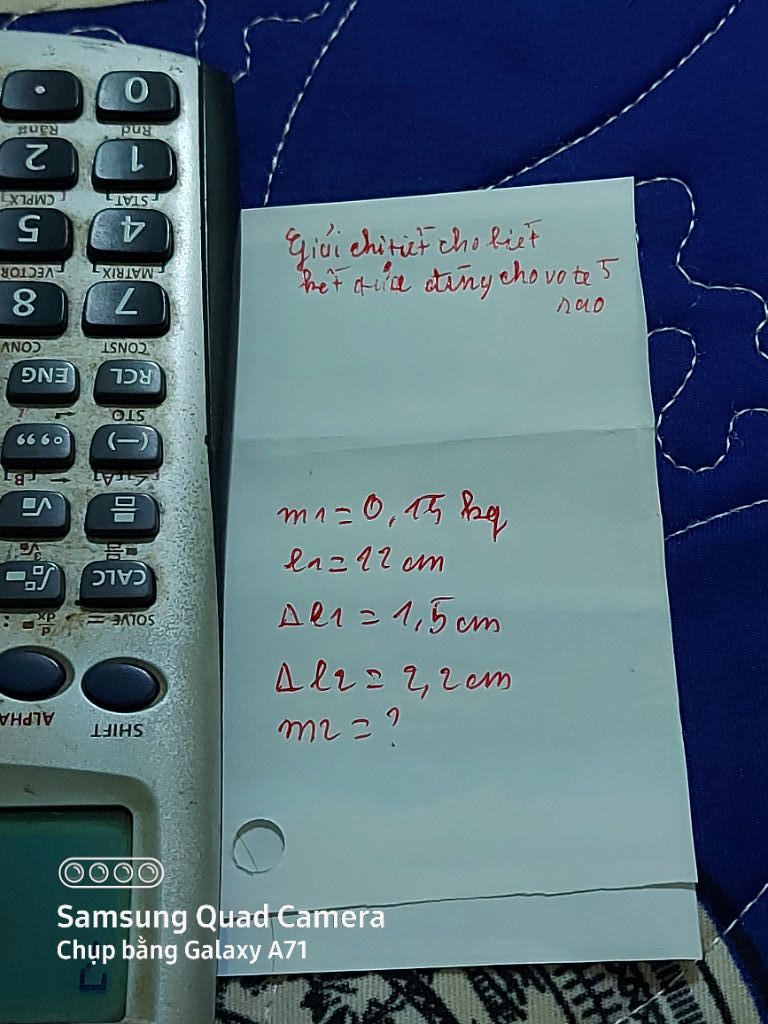 0
.
Rnd
Ran#
1
2
[STAT]
[CMPLX]
4
5
[MATRIX]
[VECTOR]
7
8
CONST
CONV
RCL
ENG
STO
(—)
° , ,,
[A]
[B]
CALC
SOLVE =
d/dx
:
SHIFT
ALPHA
Giải chi tiết cho biết
kết quả đúng cho vote 5
sao
m1 = 0,15 kg
l1 = 12 cm
Δl1 = 1,5 cm
Δl2 = 2,2 cm
m2 = ?
Samsung Quad Camera
Chụp bằng Galaxy A71